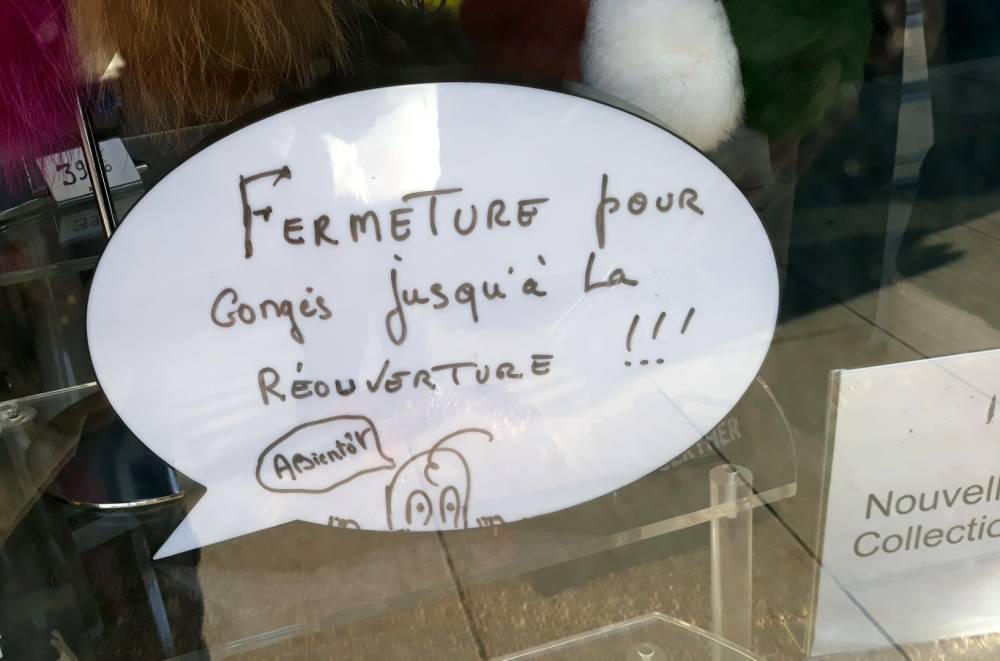 39
FERMETURE pour
Congés jusqu'à La
RÉOUVERTURE !!!
ABientôt
Nouvell
Collectio